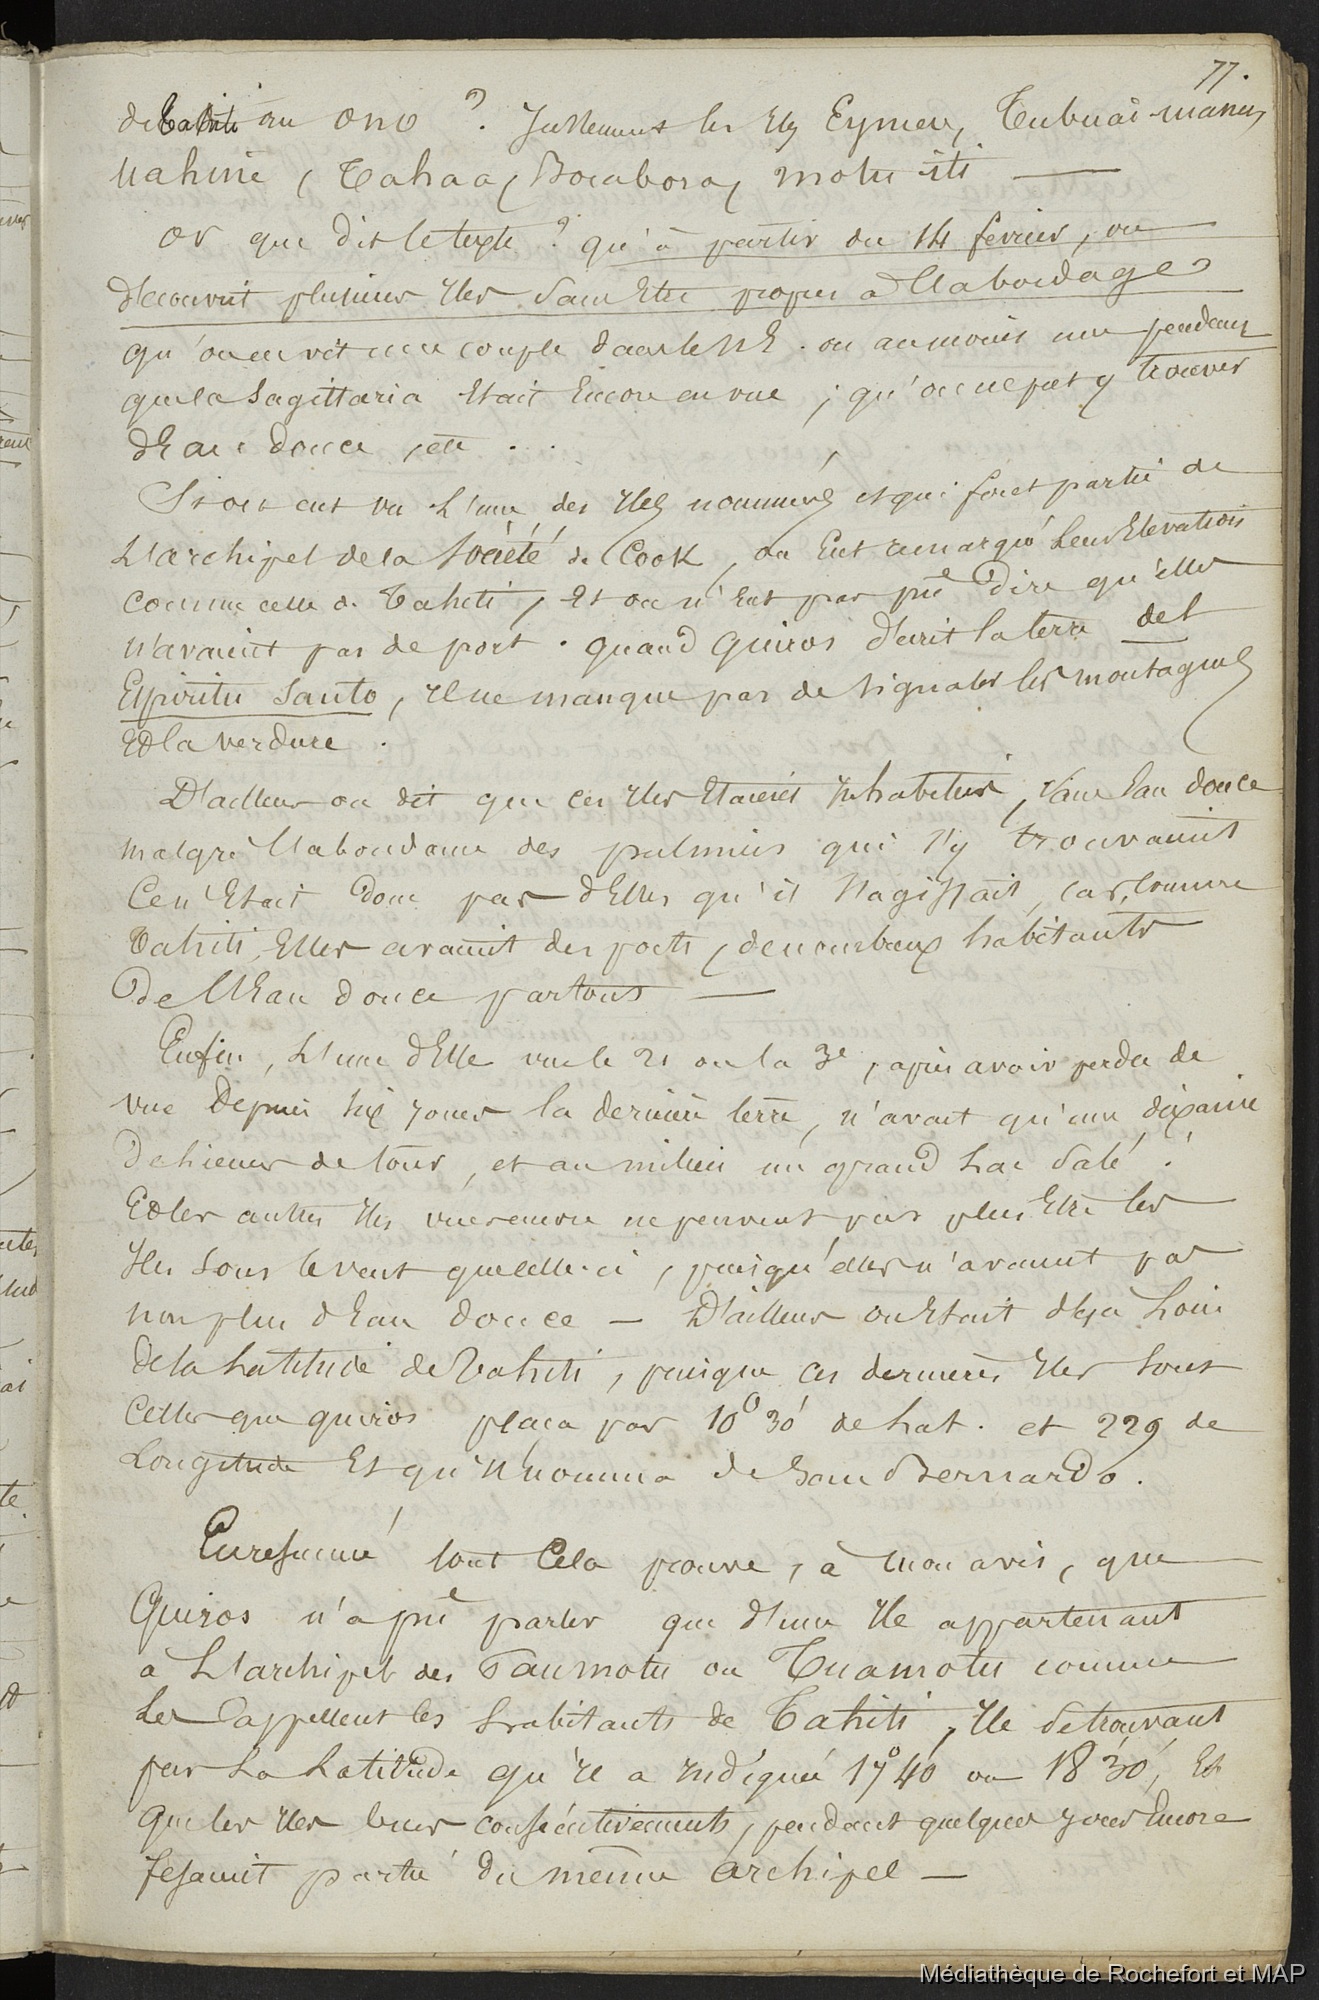 77.
de Tahiti au ONO ? Justement les Iles Eymeo, Tubuai-manu,
Uahine, Tahaa, Borabora, motu-iti —
Or que dit le texte ? qu'à partir du 14 fevrier, on
decouvrit plusieurs Iles sans Etre propres a l'abordage
qu'on en vit une couple dans le NE. ou au moins une pendant
que la Sagittaria Etait Encore en vue ; qu'on ne put y trouver
d'Eau douce, etc ...
Si on eut vu l'une des Iles nommées et qui font partie de
L'archipel de la Société de Cook, on Eut remarqué Leur Elevation
comme celle de Tahiti, Et on n'Eut pas pû Dire qu'elles
n'avaient pas de port. quand Quiros d'ecrit la terre del
Espiritu Santo, Il ne manque pas de signaler les montagnes
Et la verdure.
D'ailleurs on dit que ces Iles Etaient Inhabitées, Sans Eau douce
malgré l'abondance des palmiers qui s'y trouvaient
Ce n'Etait Donc pas d'Elles qu'il s'agissait, car, Comme
Tahiti, Elles avaient des ports, de nombreux habitants
De l'Eau douce partout —
Enfin, L'une d'Elle vue le 21 ou la 3e, apres avoir perdu de
vue Depuis six jours la derniere terre, n'avait qu'une dixaine
De lieues de tour, et au milieu un grand Lac Salé !
Et les autres Iles vues encore ne peuvent pas plus Etre les
Iles Sous le vent que celle-ci, puisqu'elles n'avaient pas
non plus d'Eau douce — D'ailleurs on Etait deja Loin
de la Latitude de Tahiti, puisque ces dernieres Iles Sont
Celles que quiros placa par 10° 30' de Lat. et 229 de
Longitude Et qu'Il nomma de San Bernardo.
En resumé tout Cela prouve, à mon avis, que
Quiros n'a pû parler que d'une Ile appartenant
a L'archipel des Paumotu ou Tuamotu comme
Les appellent les habitants de Tahiti, Ile se trouvant
par La Latitude qu'Il a Indiquée 17° 40' ou 18° 30', Et
que les Iles vues consécutivement, pendant quelques jours Encore
fesaient partie du même archipel —
Médiathèque de Rochefort et MAP